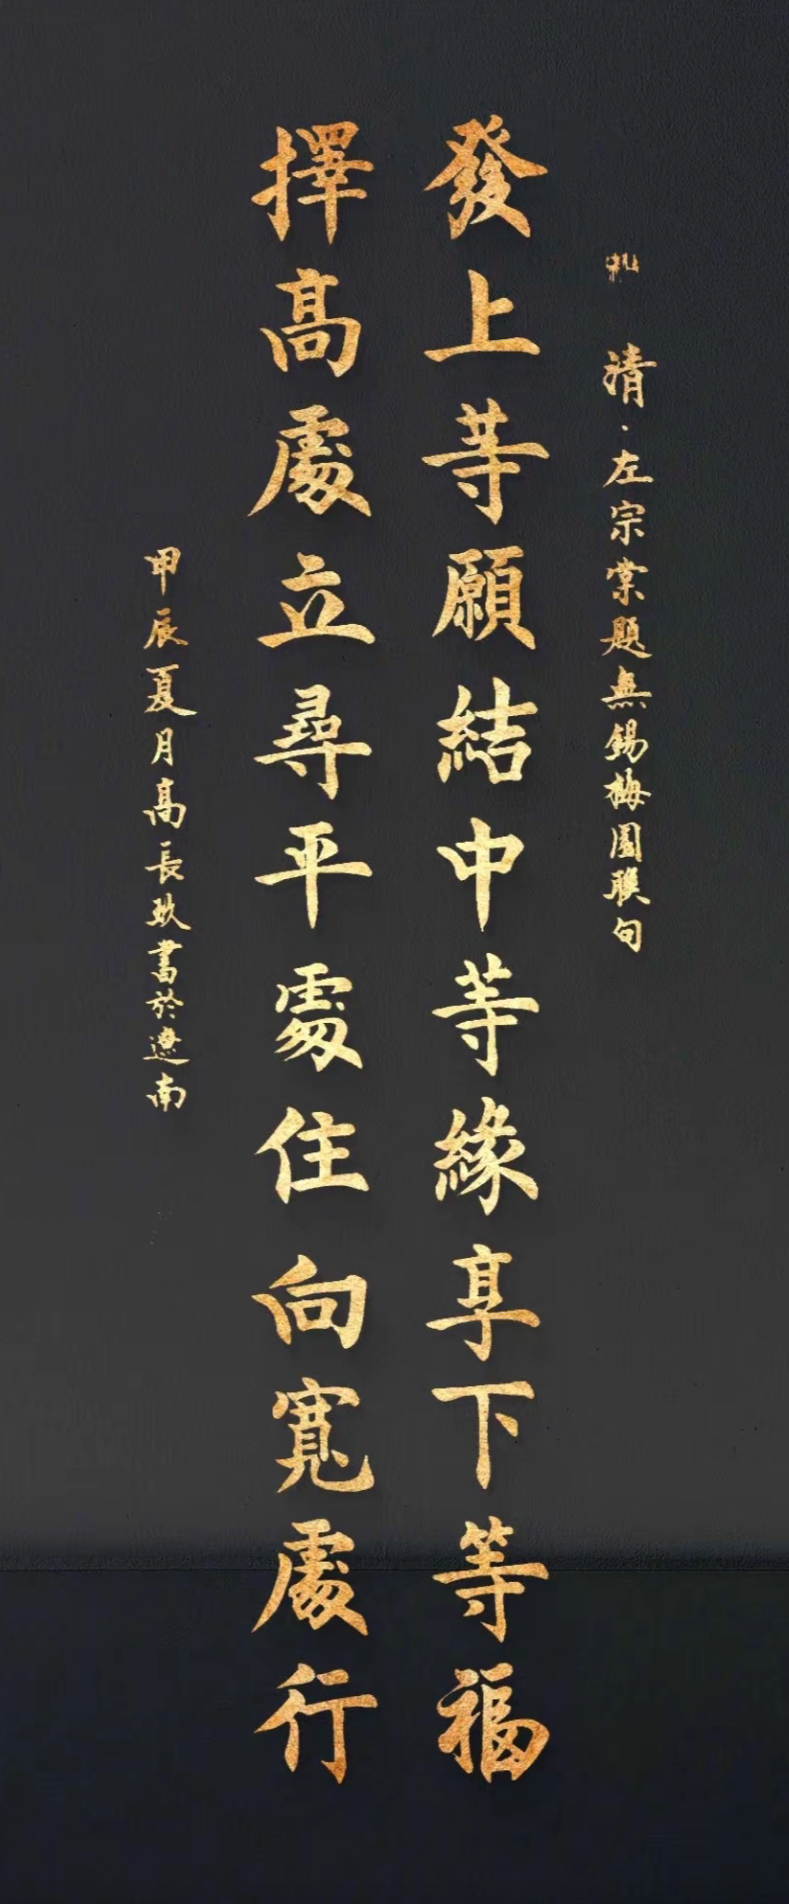 清·左宗棠題無錫梅園聯句
發上等願結中等緣享下等福
擇高處立尋平處住向寬處行
甲辰夏月高長玖書於遼南